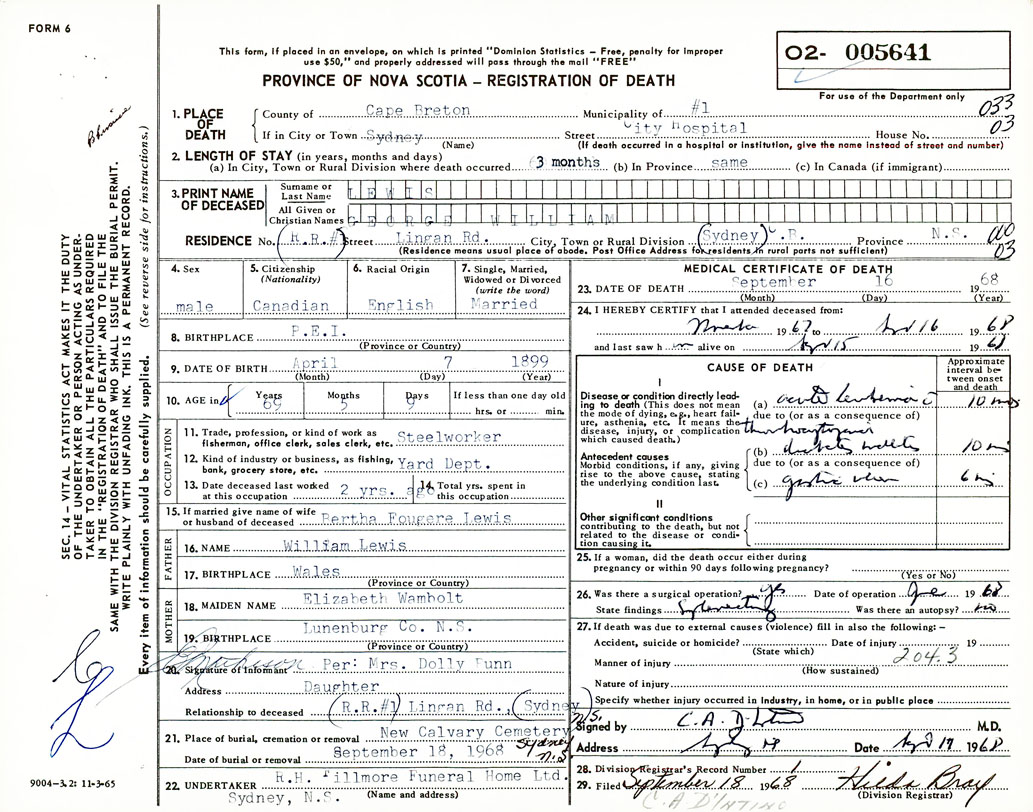 FORM 6
This form, if placed in an envelope, on which is printed "Dominion Statistics – Free, penalty for improper
use $50," and properly addressed will pass through the mail "FREE"
PROVINCE OF NOVA SCOTIA – REGISTRATION OF DEATH
02- 005641
For use of the Department only
033
03
1. PLACE OF DEATH
County of Cape Breton Municipality of #1
If in City or Town Sydney Street City Hospital House No.
(Name) (If death occurred in a hospital or institution, give the name instead of street and number)
2. LENGTH OF STAY (in years, months and days)
(a) In City, Town or Rural Division where death occurred 3 months (b) In Province same (c) In Canada (if immigrant)
3. PRINT NAME OF DECEASED
Surname or Last Name LEWIS
All Given or Christian Names GEORGE WILLIAM
RESIDENCE No. (R.R.#1) Street Lingan Rd. City, Town or Rural Division (Sydney) C.B. Province N.S.
(Residence means usual place of abode. Post Office Address for residents in rural parts not sufficient)
03
4. Sex
male
5. Citizenship
(Nationality)
Canadian
6. Racial Origin
English
7. Single, Married,
Widowed or Divorced
(write the word)
Married
8. BIRTHPLACE P.E.I.
(Province or Country)
9. DATE OF BIRTH April 7 1899
(Month) (Day) (Year)
10. AGE in Years Months Days If less than one day old
69 5 9 hrs. or min.
OCCUPATION
11. Trade, profession, or kind of work as
fisherman, office clerk, sales clerk, etc. Steelworker
12. Kind of industry or business, as fishing,
bank, grocery store, etc. Yard Dept.
13. Date deceased last worked
at this occupation 2 yrs. ago
14. Total yrs. spent in
this occupation
15. If married give name of wife
or husband of deceased Bertha Fougere Lewis
FATHER
16. NAME William Lewis
17. BIRTHPLACE Wales
(Province or Country)
MOTHER
18. MAIDEN NAME Elizabeth Wambolt
19. BIRTHPLACE Lunenburg Co. N.S.
(Province or Country)
20. Signature of Informant Per: Mrs. Dolly Nunn
Address Daughter
Relationship to deceased (R.R.#1) Lingan Rd., (Sydney)
N.S.
21. Place of burial, cremation or removal New Calvary Cemetery
Sydney
N.S.
Date of burial or removal September 18, 1968
22. UNDERTAKER R.H. Fillmore Funeral Home Ltd.
Sydney, N.S. (Name and address)
MEDICAL CERTIFICATE OF DEATH
23. DATE OF DEATH September 16 1968
(Month) (Day) (Year)
24. I HEREBY CERTIFY that I attended deceased from:
1967 to Sept 16 1968
and last saw h im alive on Sept 15 1968
CAUSE OF DEATH
Approximate
interval be-
tween onset
and death
I
Disease or condition directly lead-
ing to death (This does not mean
the mode of dying, e.g., heart fail-
ure, asthenia, etc. It means the
disease, injury, or complication
which caused death.)
(a) acute leukemia 10 mos
due to (or as a consequence of)
Antecedent causes
Morbid conditions, if any, giving
rise to the above cause, stating
the underlying condition last.
(b) diabetes mellitus 10
due to (or as a consequence of)
(c) gastric ulcer 6
II
Other significant conditions
contributing to the death, but not
related to the disease or condi-
tion causing it.
25. If a woman, did the death occur either during
pregnancy or within 90 days following pregnancy?
(Yes or No)
26. Was there a surgical operation? yes Date of operation June 1968
State findings Splenectomy Was there an autopsy? no
27. If death was due to external causes (violence) fill in also the following: –
Accident, suicide or homicide? Date of injury 19
(State which)
204.3
Manner of injury
(How sustained)
Nature of injury
Specify whether injury occurred in industry, in home, or in public place
Signed by C.A. D'Intino M.D.
Address Sydney NS Date Sept 17 1968
28. Division Registrar's Record Number 1
29. Filed September 18 1968 Hilda Bray
(Division Registrar)
C.A D'INTINO
SEC. 14 – VITAL STATISTICS ACT MAKES IT THE DUTY
OF THE UNDERTAKER OR PERSON ACTING AS UNDER-
TAKER TO OBTAIN ALL THE PARTICULARS REQUIRED
IN THE "REGISTRATION OF DEATH" AND TO FILE THE
SAME WITH THE DIVISION REGISTRAR WHO SHALL ISSUE THE BURIAL PERMIT.
WRITE PLAINLY WITH UNFADING INK. THIS IS A PERMANENT RECORD.
Every item of information should be carefully supplied. (See reverse side for instructions.)
9004–3.2: 11-3-65